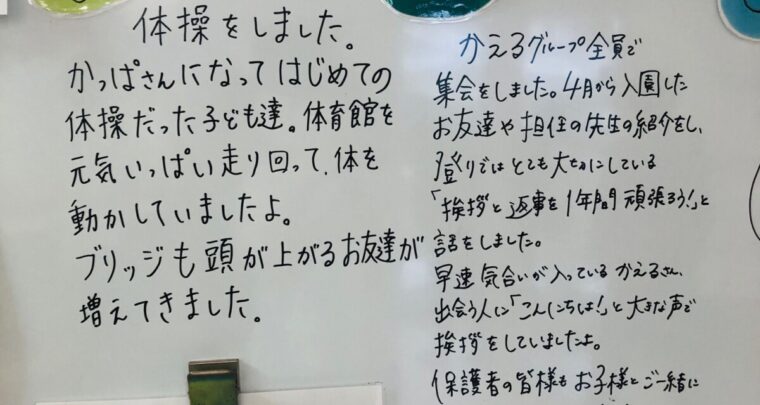 体操をしました。
かっぱさんになってはじめての
体操だった子ども達。体育館を
元気いっぱい走り回って、体を
動かしていましたよ。
ブリッジも頭が上がるお友達が
増えてきました。
かえるグループ全員で
集会をしました。4月から入園した
お友達や担任の先生の紹介をし、
登りではとても大切にしている
「挨拶と返事を1年間頑張ろう!」と
話をしました。
早速気合いが入っているかえるさん、
出会う人に「こんにちは!」と大きな声で
挨拶をしていましたよ。
保護者の皆様もお子様とご一緒に